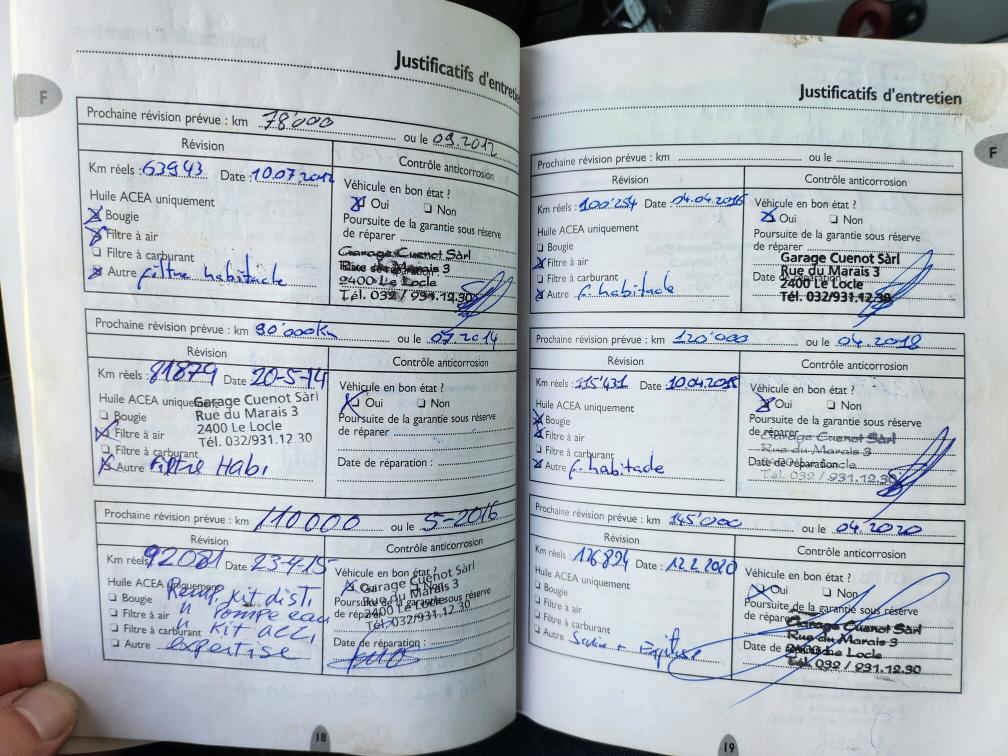 Justificatifs d'entretien
F
Prochaine révision prévue : km 78'000 ou le 09.2012
Révision
Contrôle anticorrosion
Km réels : 63943 Date : 10.07.2012
Véhicule en bon état ?
Oui Non
Huile ACEA uniquement
Poursuite de la garantie sous réserve
de réparer
Bougie
Filtre à air
Filtre à carburant
Autre filtre habitacle
Garage Cuenot Sàrl
Rue du Marais 3
2400 Le Locle
Tél. 032 / 931.12.30
Prochaine révision prévue : km 90'000km ou le 07.2014
Révision
Contrôle anticorrosion
Km réels : 81879 Date 20-5-14
Véhicule en bon état ?
Oui Non
Huile ACEA uniquement
Poursuite de la garantie sous réserve
de réparer
Bougie
Filtre à air
Filtre à carburant
Autre Filtre Habi
Garage Cuenot Sàrl
Rue du Marais 3
2400 Le Locle
Tél. 032/931.12 30
Date de réparation :
Prochaine révision prévue : km 110000 ou le 5-2016
Révision
Contrôle anticorrosion
Km réels 92081 Date 23-4-15
Huile ACEA uniquement
Bougie
Filtre à air
Filtre à carburant
Autre
Remp Kit disti
" Pompe eau
" Kit acc,
expertise
Oui
Poursuite de la garantie sous réserve
de réparer
Garage Cuenot Sàrl
Rue du Marais 3
2400 Le Locle
Tél. 032/931.12.30
Date de réparation :
18
Justificatifs d'entretien
F
Prochaine révision prévue : km ou le
Révision
Contrôle anticorrosion
Km réels : 100'254 Date : 04.04.2016
Véhicule en bon état ?
Oui Non
Huile ACEA uniquement
Poursuite de la garantie sous réserve
de réparer
Bougie
Filtre à air
Filtre à carburant
Autre f. habitacle
Garage Cuenot Sàrl
Rue du Marais 3
2400 Le Locle
Tél. 032/931.12.30
Prochaine révision prévue : km 120'000 ou le 04.2018
Révision
Contrôle anticorrosion
Km réels : 115'431 Date 10.04.
Véhicule en bon état ?
Oui Non
Huile ACEA uniquement
Poursuite de la garantie sous réserve
de réparer
Bougie
Filtre à air
Filtre à carburant
Autre f. habitacle
Garage Cuenot Sàrl
Rue du Marais 3
Date de réparation
Tél. 032 / 931.12.30
Prochaine révision prévue : km 145'000 ou le 04.2020
Révision
Contrôle anticorrosion
Km réels : 126'894 Date : 12.2.2020
Véhicule en bon état ?
Oui Non
Huile ACEA uniquement
Poursuite de la garantie sous réserve
de réparer
Bougie
Filtre à air
Filtre à carburant
Autre
Garage Cuenot Sàrl
Rue du Marais 3
2400 Le Locle
Tél. 032 / 931.12.30
19